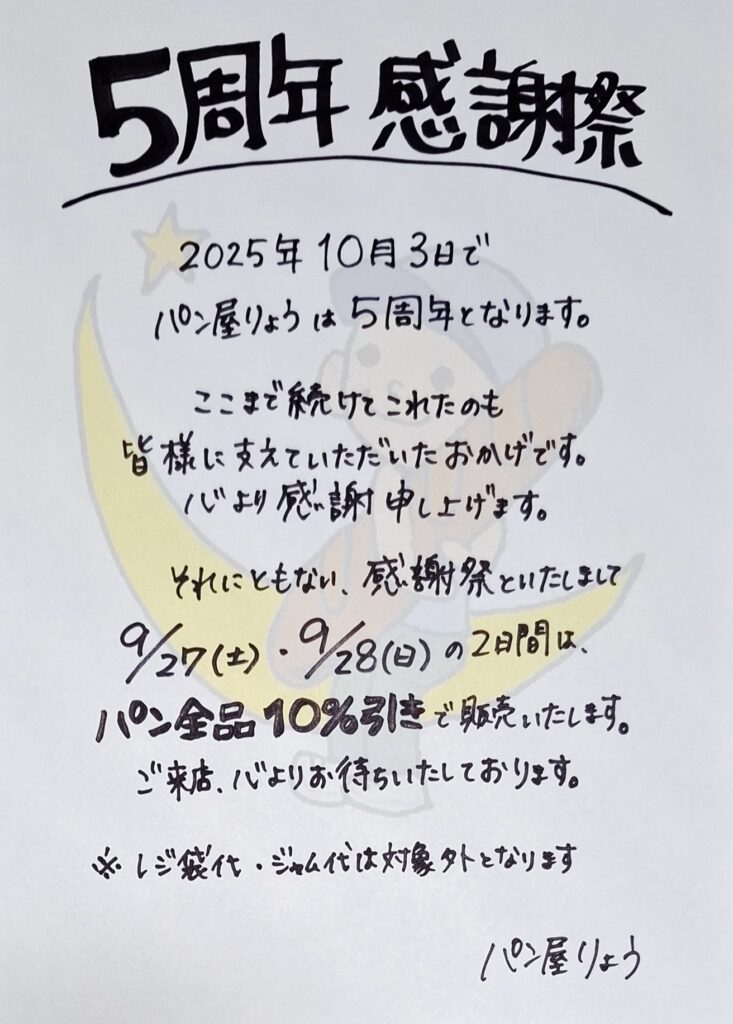 5周年 感謝祭
2025年 10月 3日で
パン屋りょうは 5周年となります。
ここまで続けてこれたのも
皆様に支えていただいたおかげです。
心より感謝申し上げます。
それにともない、感謝祭といたしまして
9/27(土)・9/28(日)の2日間は、
パン全品10%引きで販売いたします。
ご来店、心よりお待ちいたしております。
※ レジ袋代・ジャム代は対象外となります
パン屋りょう